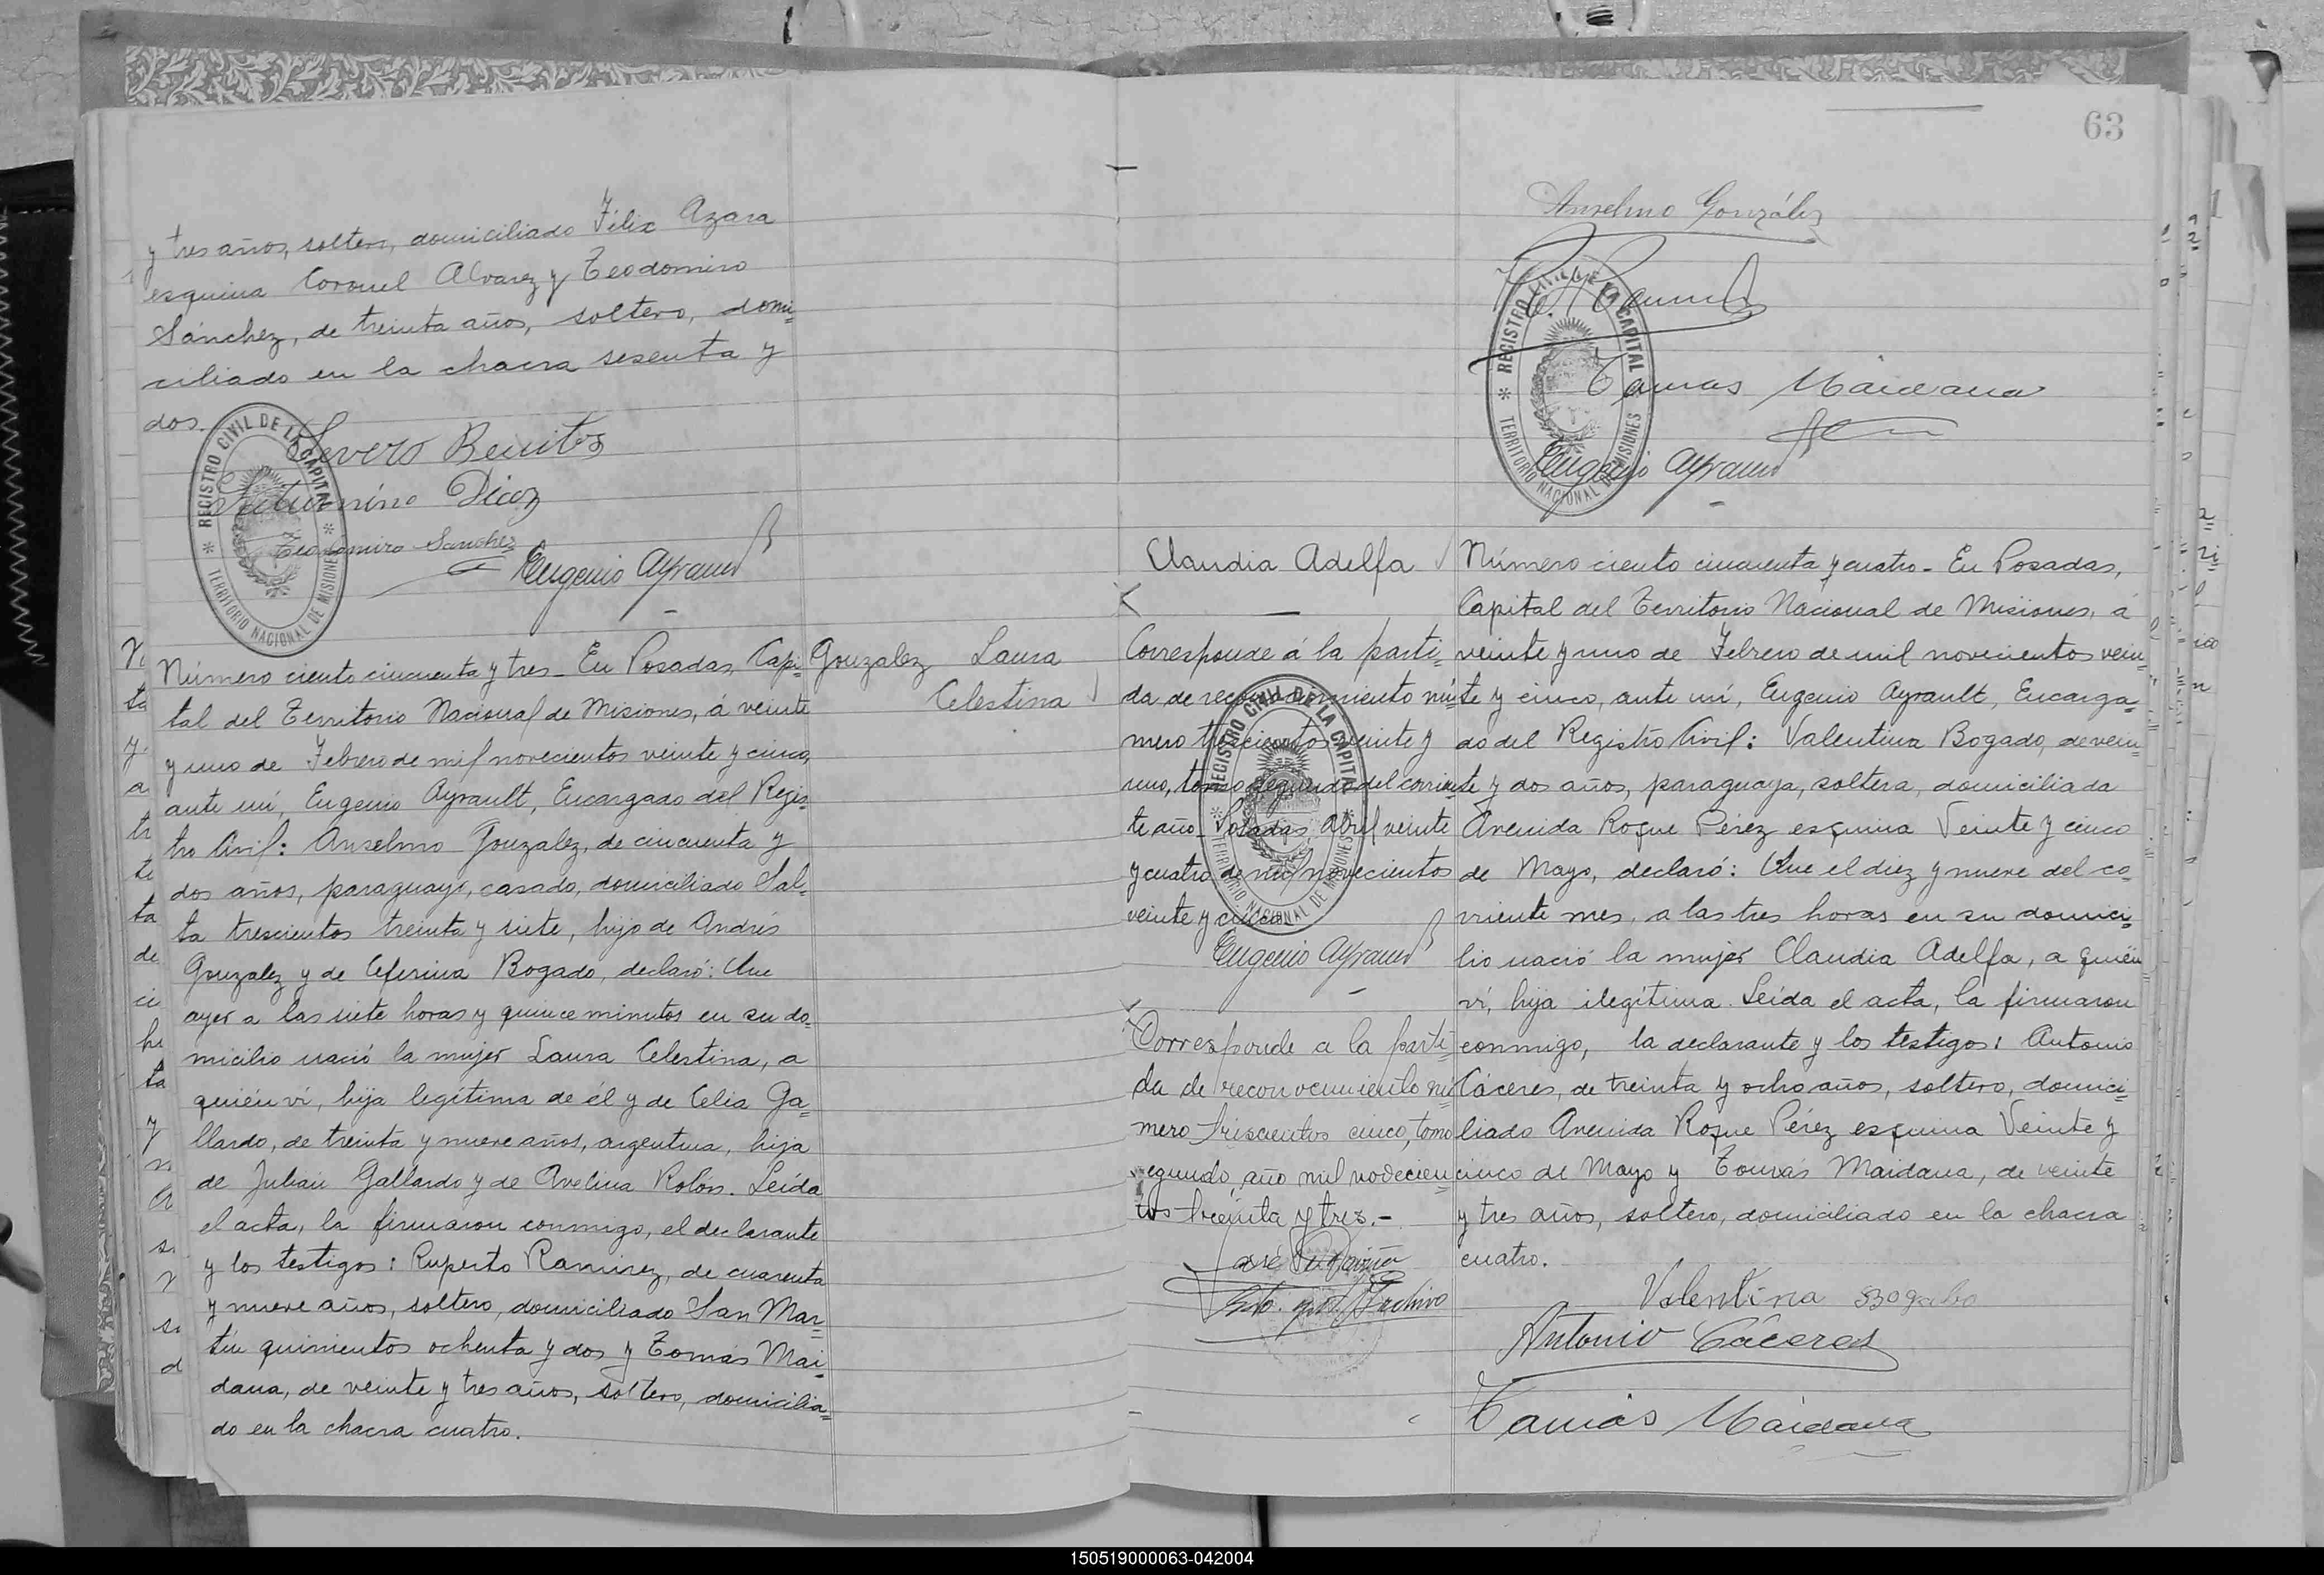 y tres años, soltero, domiciliado Félix Azara
esquina Coronel Alvarez y Teodomiro
Sánchez, de treinta años, soltero, domi=
ciliado en la chacra sesenta y
dos.
REGISTRO CIVIL DE LA CAPITAL
TERRITORIO NACIONAL DE MISIONES
Severo Benitez
Saturnino Diaz
Teodomiro Sanchez
Eugenio Ayrault
Gonzalez Laura
Celestina
Número ciento cincuenta y tres_ En Posadas, Capi=
tal del Territorio Nacional de Misiones, á veinte
y uno de Febrero de mil novecientos veinte y cinco,
ante mí, Eugenio Ayrault, Encargado del Regis=
tro Civil: Anselmo Gonzalez, de cincuenta y
dos años, paraguayo, casado, domiciliado Sal=
ta trescientos treinta y siete, hijo de Andrés
Gonzalez y de Ceferina Bogado, declaró: Que
ayer a las siete horas y quince minutos en su do=
micilio nació la mujer Laura Celestina, a
quién ví, hija legítima de él y de Celia Ga=
llardo, de treinta y nueve años, argentina, hija
de Julian Gallardo y de Avelina Rolón. Leída
el acta, la firmaron conmigo, el declarante
y los testigos: Ruperto Ramirez, de cuarenta
y nueve años, soltero, domiciliado San Mar=
tín quinientos ochenta y dos y Tomás Mai=
dana, de veinte y tres años, soltero, domicilia=
do en la chacra cuatro.
63
Anselmo González
REGISTRO CIVIL DE LA CAPITAL
TERRITORIO NACIONAL DE MISIONES
Tomas Maidana
Eugenio Ayrault
Claudia Adelfa
Corresponde á la parti=
da de reconocimiento nú=
mero trescientos veinte y
uno, tomo segundo del corrien=
te año_ Posadas, Abril veinte
y cuatro de mil novecientos
veinte y cinco.
REGISTRO CIVIL DE LA CAPITAL
TERRITORIO NACIONAL DE MISIONES
Eugenio Ayrault
Corresponde a la parti=
da de reconocimiento nú=
mero trescientos cinco, tomo
segundo, año mil novecien=
tos treinta y tres.-
José
Archivo
Número ciento cincuenta y cuatro_ En Posadas,
Capital del Territorio Nacional de Misiones, á
veinte y uno de Febrero de mil novecientos vein=
te y cinco, ante mí, Eugenio Ayrault, Encarga=
do del Registro Civil: Valentina Bogado, de vein=
te y dos años, paraguaya, soltera, domiciliada
Avenida Roque Pérez esquina Veinte y cinco
de Mayo, declaró: Que el diez y nueve del co=
rriente mes, a las tres horas en su domici=
lio nació la mujer Claudia Adelfa, a quién
ví, hija ilegítima. Leída el acta, la firmaron
conmigo, la declarante y los testigos: Antonio
Cáceres, de treinta y ocho años, soltero, domici=
liado Avenida Roque Pérez esquina Veinte y
cinco de Mayo y Tomás Maidana, de veinte
y tres años, soltero, domiciliado en la chacra
cuatro.
Valentina Bogado
Antonio Cáceres
Tomás Maidana
150519000063-042004